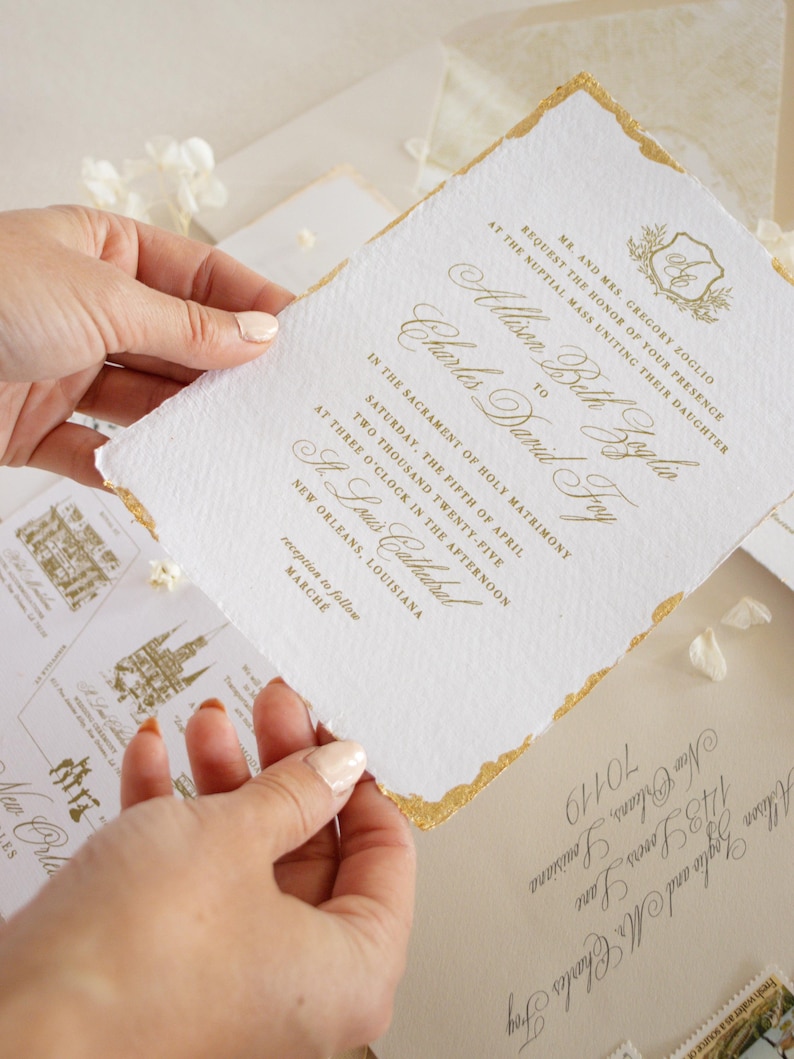 AC
MR. AND MRS. GREGORY ZOGLIO
REQUEST THE HONOR OF YOUR PRESENCE
AT THE NUPTIAL MASS UNITING THEIR DAUGHTER
Allison Beth Zoglio
TO
Charles David Foy
IN THE SACRAMENT OF HOLY MATRIMONY
SATURDAY, THE FIFTH OF APRIL
TWO THOUSAND TWENTY-FIVE
AT THREE O'CLOCK IN THE AFTERNOON
St. Louis Cathedral
NEW ORLEANS, LOUISIANA
reception to follow
MARCHÉ
St. Louis Cathedral
WEDDING CEREMONY
We will
Transportation
are not
New Orle
Allison
Zoglio and Mr. Charles Foy
143 Lovers Lane
New Orleans, Louisiana
70119
Fresh water as a source of